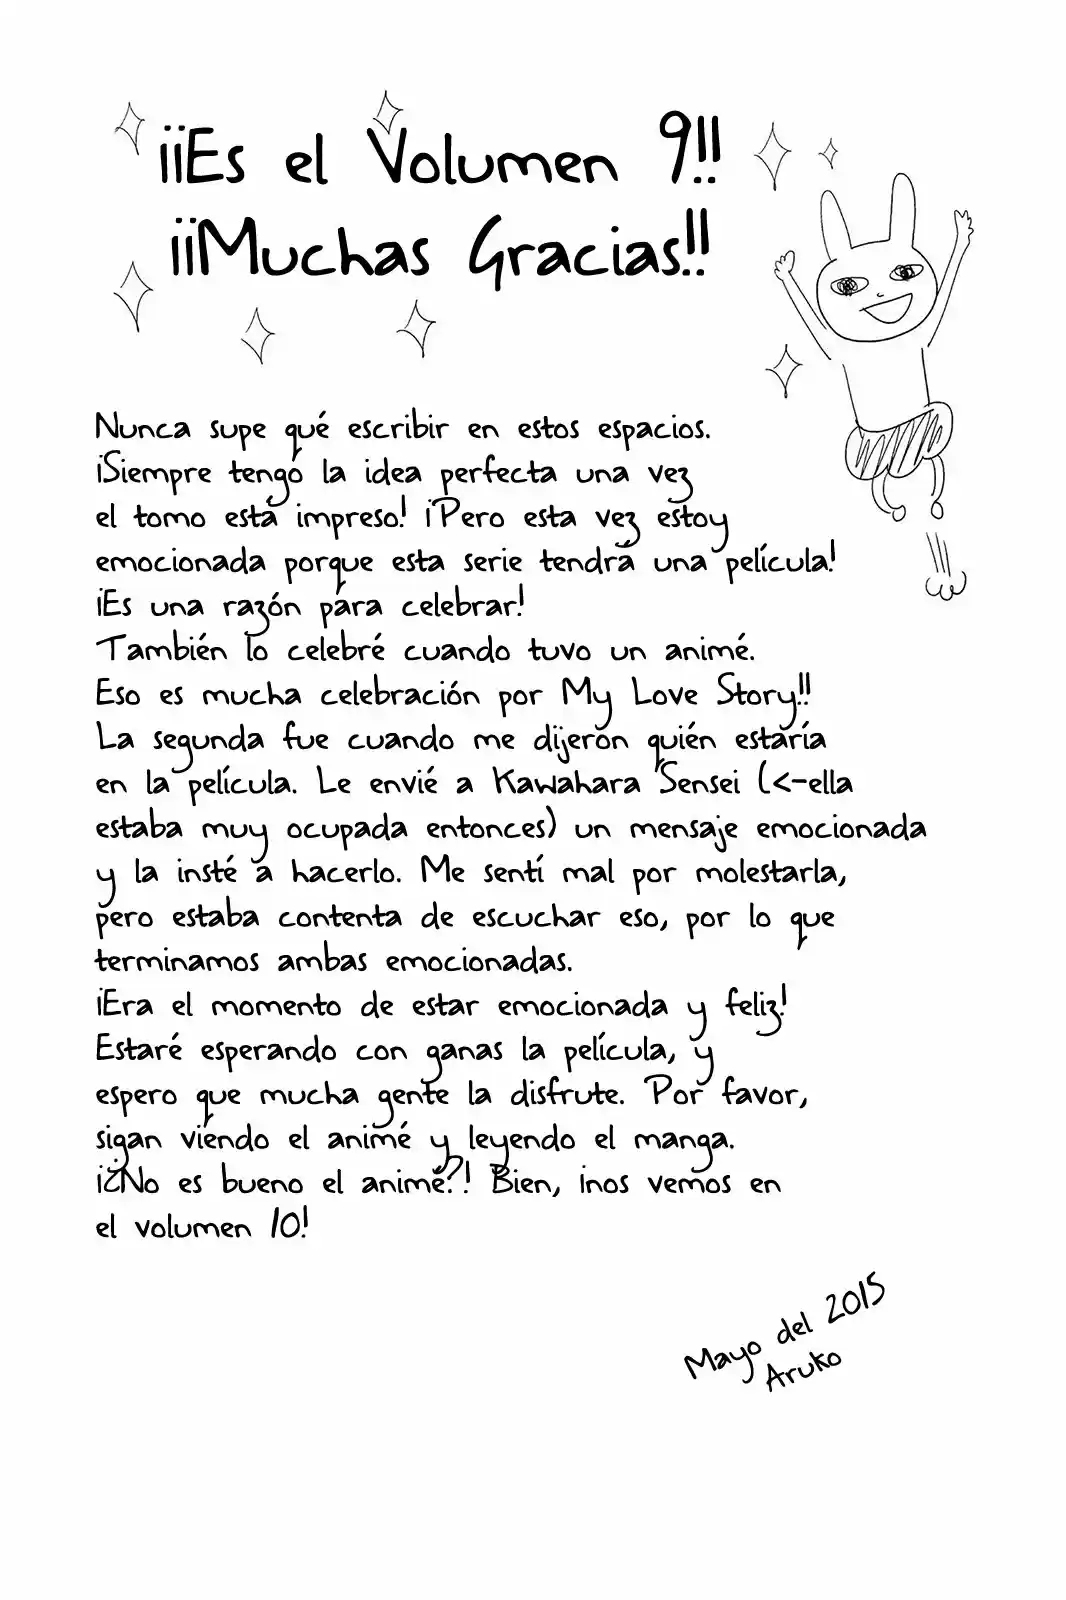 ¡¡Es el Volumen 9!!
¡¡Muchas Gracias!!
Nunca supe qué escribir en estos espacios.
¡Siempre tengo la idea perfecta una vez
el tomo está impreso! ¡Pero esta vez estoy
emocionada porque esta serie tendrá una película!
¡Es una razón para celebrar!
También lo celebré cuando tuvo un animé.
Eso es mucha celebración por My Love Story!!
La segunda fue cuando me dijeron quién estaría
en la película. Le envié a Kawahara Sensei (<-ella
estaba muy ocupada entonces) un mensaje emocionada
y la insté a hacerlo. Me sentí mal por molestarla,
pero estaba contenta de escuchar eso, por lo que
terminamos ambas emocionadas.
¡Era el momento de estar emocionada y feliz!
Estaré esperando con ganas la película, y
espero que mucha gente la disfrute. Por favor,
sigan viendo el animé y leyendo el manga.
¡¿No es bueno el animé?! Bien, ¡nos vemos en
el volumen 10!
Mayo del 2015
Aruko